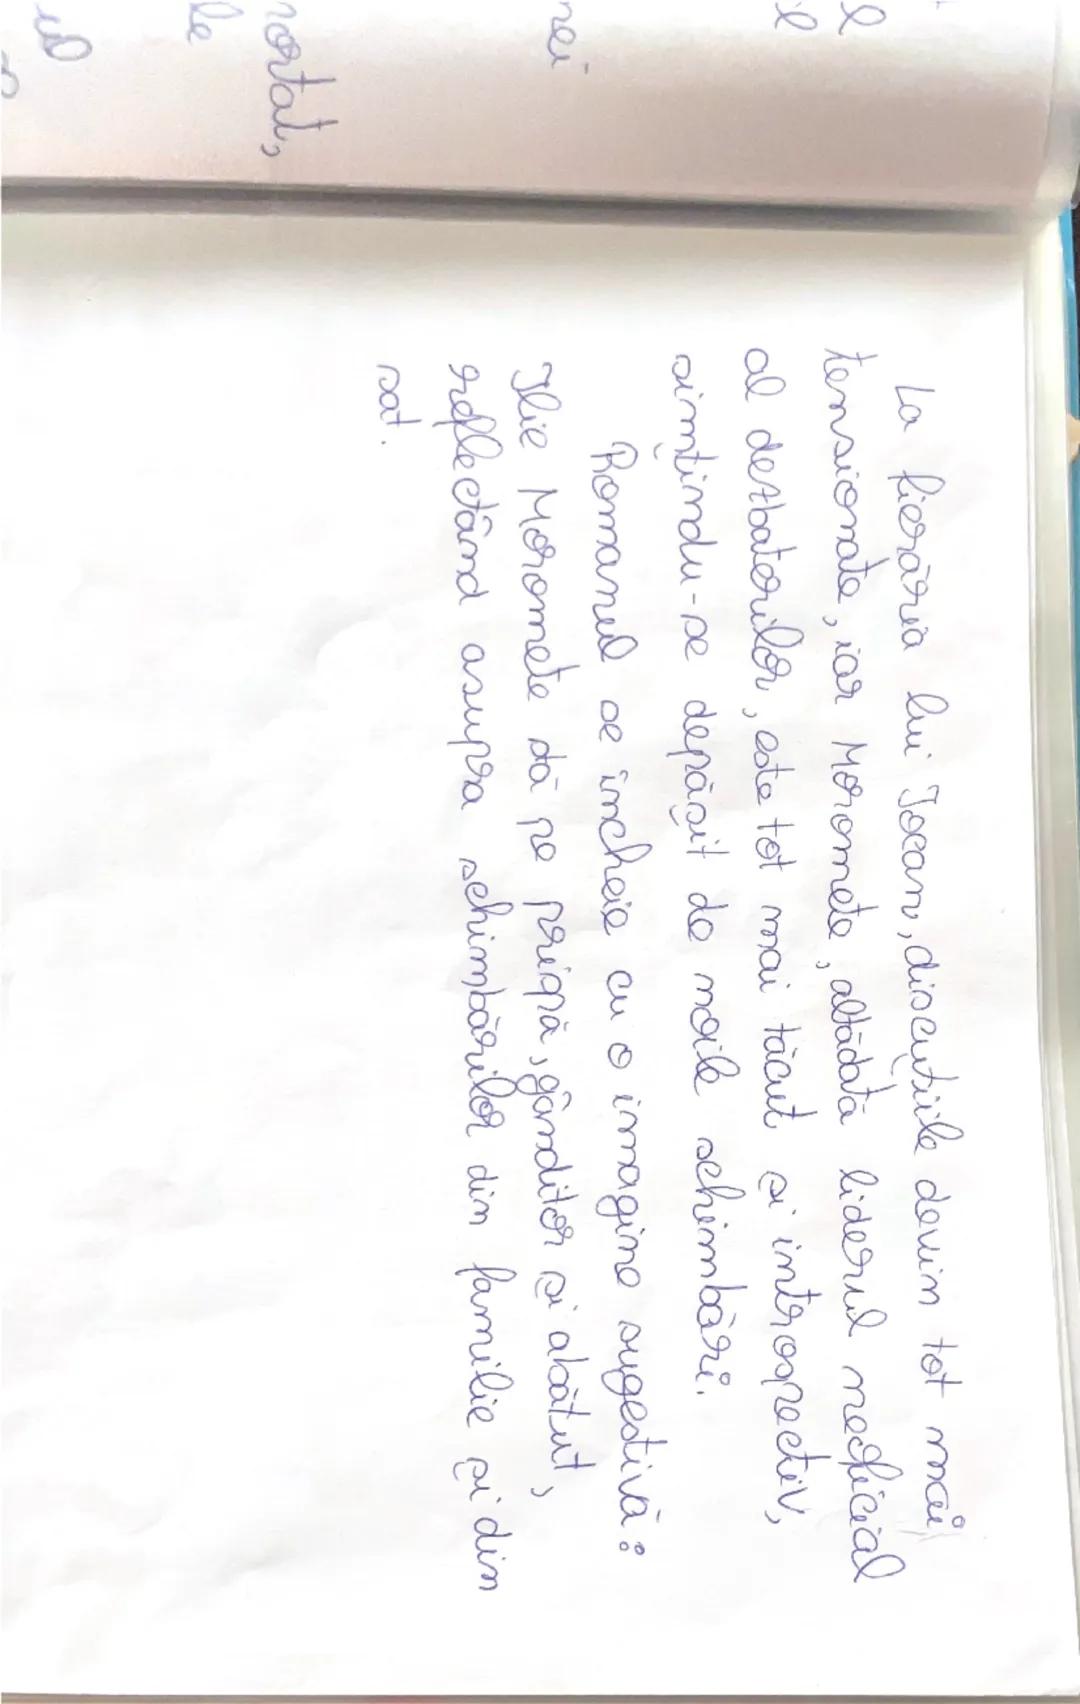 l
il
nei
mortal,
le
ul
La fierăria lui Iocan, discuțiile devin tot mai
tensionate, iar Moromete, altădată liderul neoficial
al dezbaterilor, este tot mai tăcut și introspectiv,
simțindu-se depășit de noile schimbări.
Romanul se încheie cu o imagine sugestivă:
Ilie Moromete dă pe prispă, gânditor și abătut,
reflectând asupra schimbărilor din familie și din
sat.